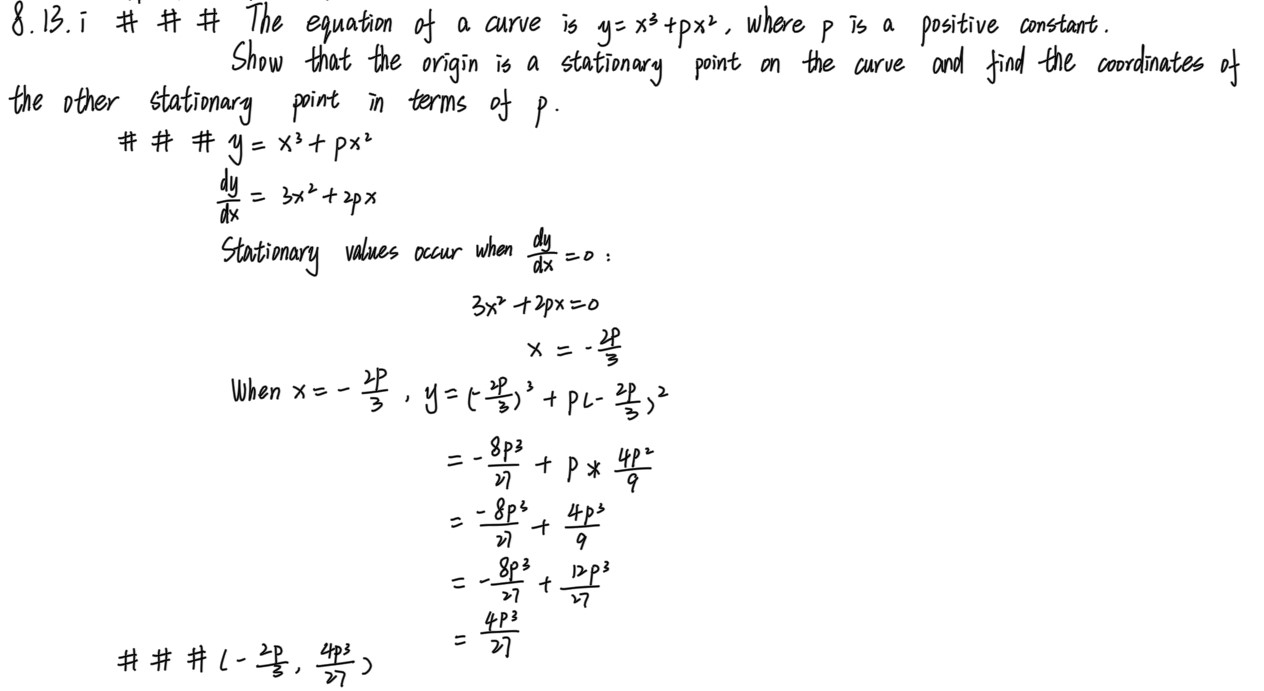 8.13.i # # # The equation of a curve is y = x³ + px², where p is a positive constant.
Show that the origin is a stationary point on the curve and find the coordinates of
the other stationary point in terms of p.
# # # y = x³ + px²
dy/dx = 3x² + 2px
Stationary values occur when dy/dx = 0 :
3x² + 2px = 0
x = - 2p/3
When x = - 2p/3 , y = (- 2p/3)³ + p(- 2p/3)²
= - 8p³/27 + p * 4p²/9
= -8p³/27 + 4p³/9
= - 8p³/27 + 12p³/27
= 4p³/27
# # # (- 2p/3, 4p³/27)